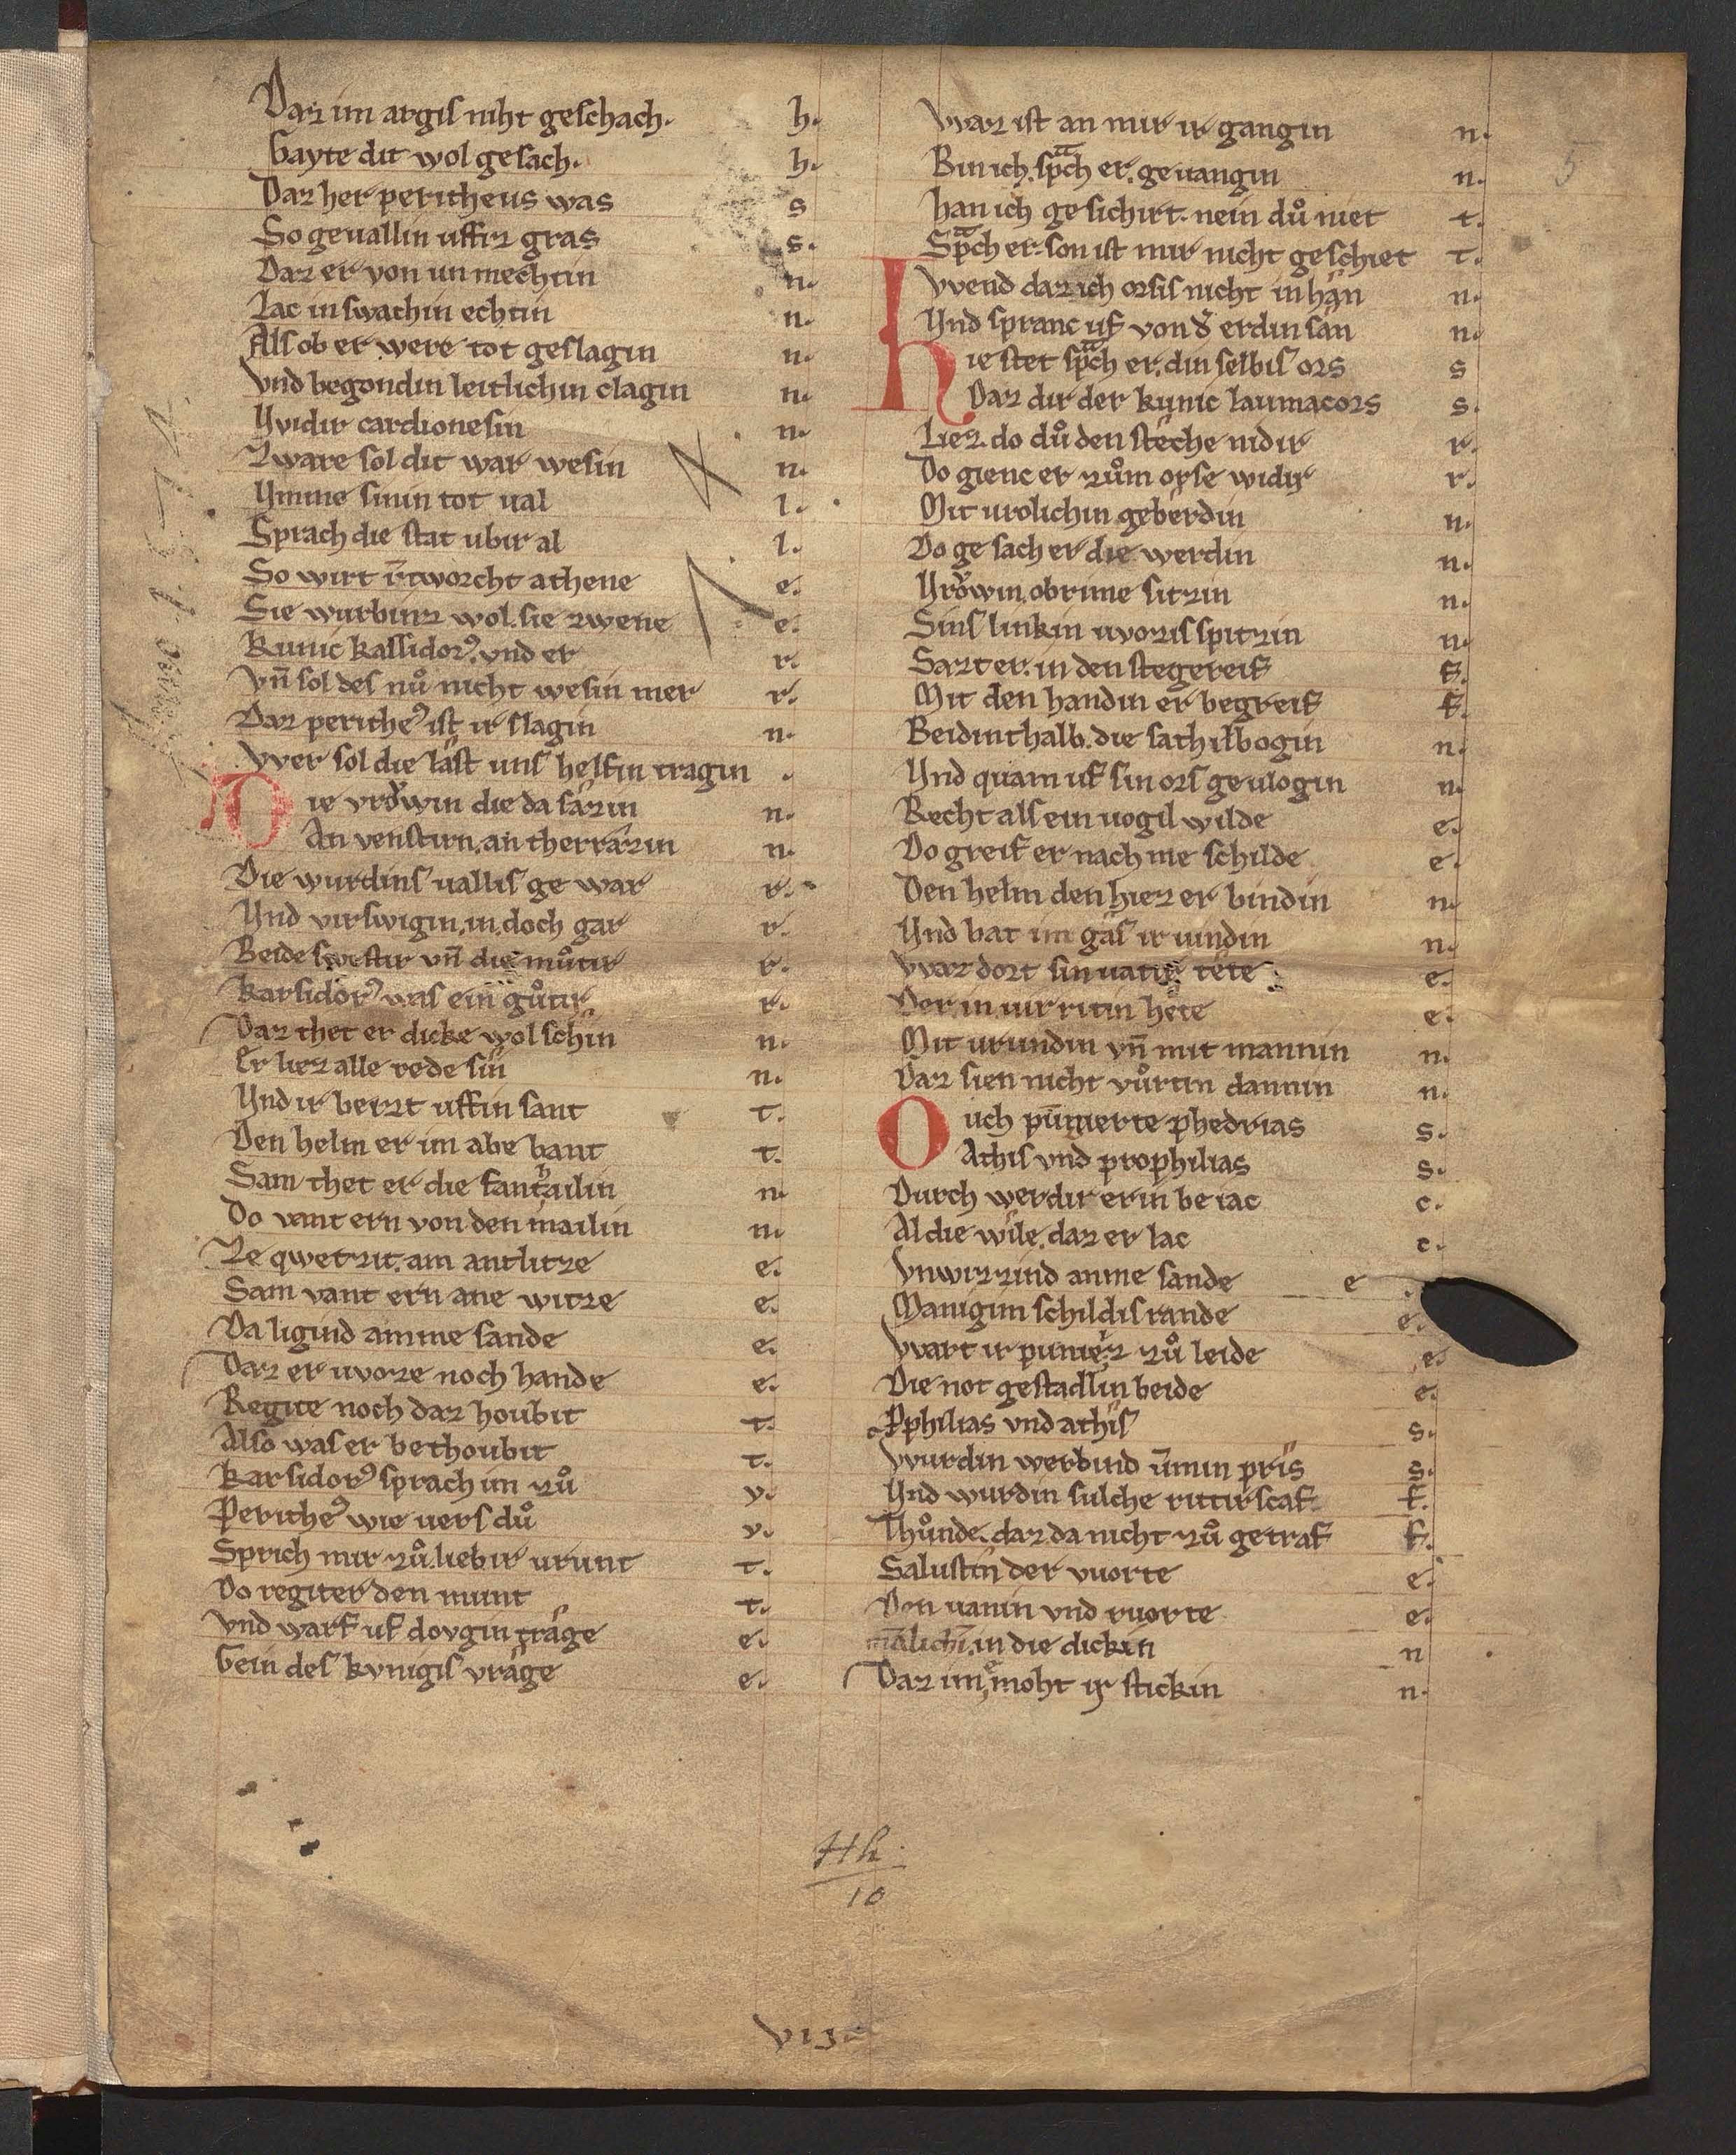 Daz im argis niht geschach. h.
Gayte dit wol gesach. h.
Daz her peritheus was s
So geuallin uffiz gras s.
Daz er von un mechtin n.
Lac in swachin echtin n.
Als ob er were tot geslagin n.
Vnd begondin leitlichin clagin n.
Widir cardionesin n.
Zware sol dit war wesin n.
Vmme sinin tot ual l.
Sprach die stat ubir al l.
So wirt athene e.
Sie wurbinz wol. sie zwene e.
Kunic kassidor᾿. vnd er r.
Vn̄ sol des nuͦ nicht wesin mer r.
Daz perithe᾿ ist ir slagin n.
Wer sol die last uns helfin tragin
Die vroͮwin die da sâzin n.
An venstirn. an therrâzin n.
Die wurdins uallis ge war r.
Vnd virswigin. in. doch gar r.
Beide swestir vn̄ die muͦtir r.
Karsidor᾿ was ein guͦtir r.
Daz thet er dicke wol schin n.
Er liez alle rede sin n.
Vnd ir beizt uffin sant t.
Den helm er im abe bant t.
Sam thet er die fantailin n.
Do vant ern von den mailin n.
Ze qwetzit. am antlitze e.
Sam vant ern ane witze e.
Da ligind amme sande e.
Daz er uvoze noch hande e.
Regite noch daz houbit t.
Also was er bethoubit t.
Karsidor᾿ sprach im zuͦ v.
Perithe᾿ wie uers duͦ v.
Sprich mir zuͦ. liebir urunt t.
Do regiter den munt t.
Vnd warf uf dovgin trâge e.
Gein des kvnigis vrâge e.
Waz ist an mir ir gangin n.
Bin ich. spͣch er. geuangin n.
Han ich gesichirt. nein duͦ niet t.
Spͣch er. son ist mir nicht geschiet t.
Wend daz ich orsis nicht in hân n.
Vnd spranc uf von d᾿ erdin sân n.
Hie stet spͣch er. din selbis ors s
Daz dir der kunic laumacors s.
Liez. do duͦ den steche nidir r.
Do gienc er zuͦm orse widir r.
Mit vrolichin geberdin n.
Do ge sach er die werdin n.
Vroͮwin. ob rime sitzin n.
Sins linkin uvozis spitzin n.
Sazt er. in den stegereif f.
Mit den handin er begreif f.
Beidinthalb. die sathilbogin n.
Vnd quam uf sin ors geulogin n.
Recht als ein uogil wilde e.
Do greif er nach me schilde e.
Den helm den hiez er bindin n.
Vnd bat im gâs ir uindin n.
Waz dort sin uatir tête e.
Der in uir ritin hête e.
Mit urundin vn̄ mit mannin n.
Daz sien nicht vuͦrtin dannin n.
Ouch pūnierte phedrias s.
Athis vnd prophilias s.
Durch werdir erin be iac c.
Al die wîle. daz er lac c.
Vnwizzind amme sande e
Manigim schildis rande e.
Wart ir punîez zuͦ leide e.
Die not gestadlin beide e.
Pphilias vnd athis s.
Wurdin werbind ūmin prîs s.
Vnd wurdin sulche rittirscaf f.
Thuͦnde. daz da nicht zuͦ getraf f.
Salustin der vuorte e.
Den uanin vnd ruorte e.
mālichī. in die dickin n
Daz im moht ir stickin n.
5
Hh
10